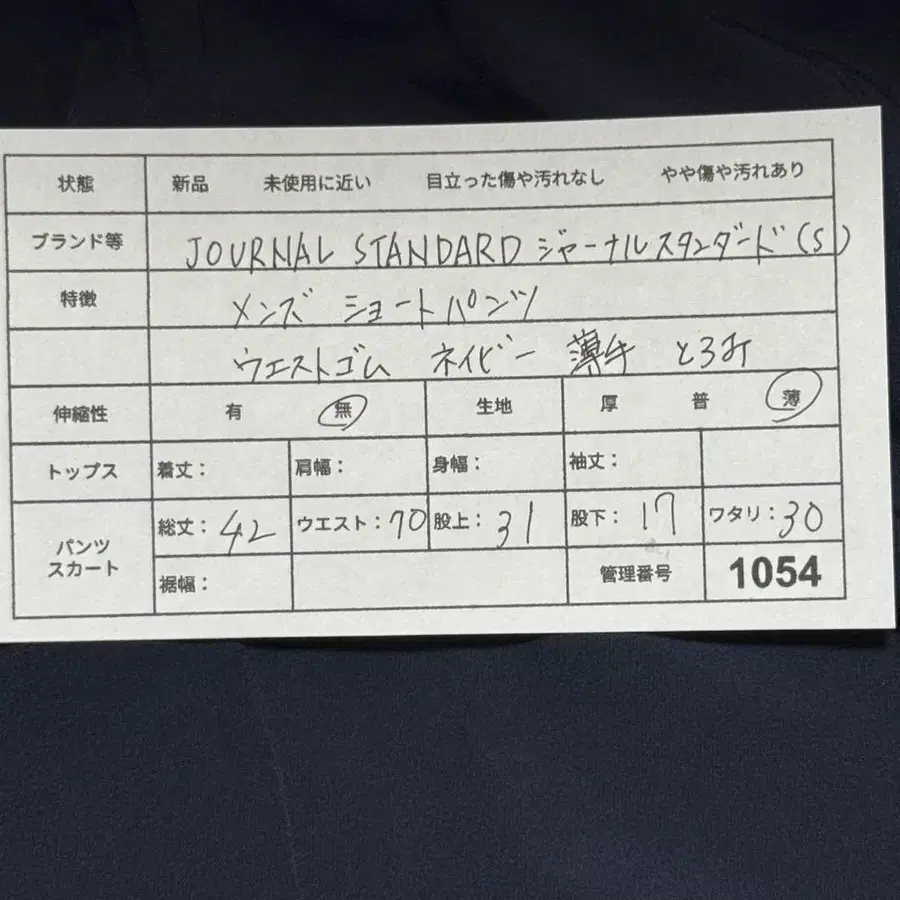 状態 新品 未使用に近い 目立った傷や汚れなし やや傷や汚れあり
ブランド等 JOURNAL STANDARD ジャーナルスタンダード(S)
特徴 メンズ ショートパンツ
ウエストゴム ネイビー 薄手 とろみ
伸縮性 有 無 生地 厚 普 薄
トップス 着丈: 肩幅: 身幅: 袖丈:
パンツ スカート 総丈: 42 ウエスト: 70 股上: 31 股下: 17 ワタリ: 30
裾幅: 管理番号 1054